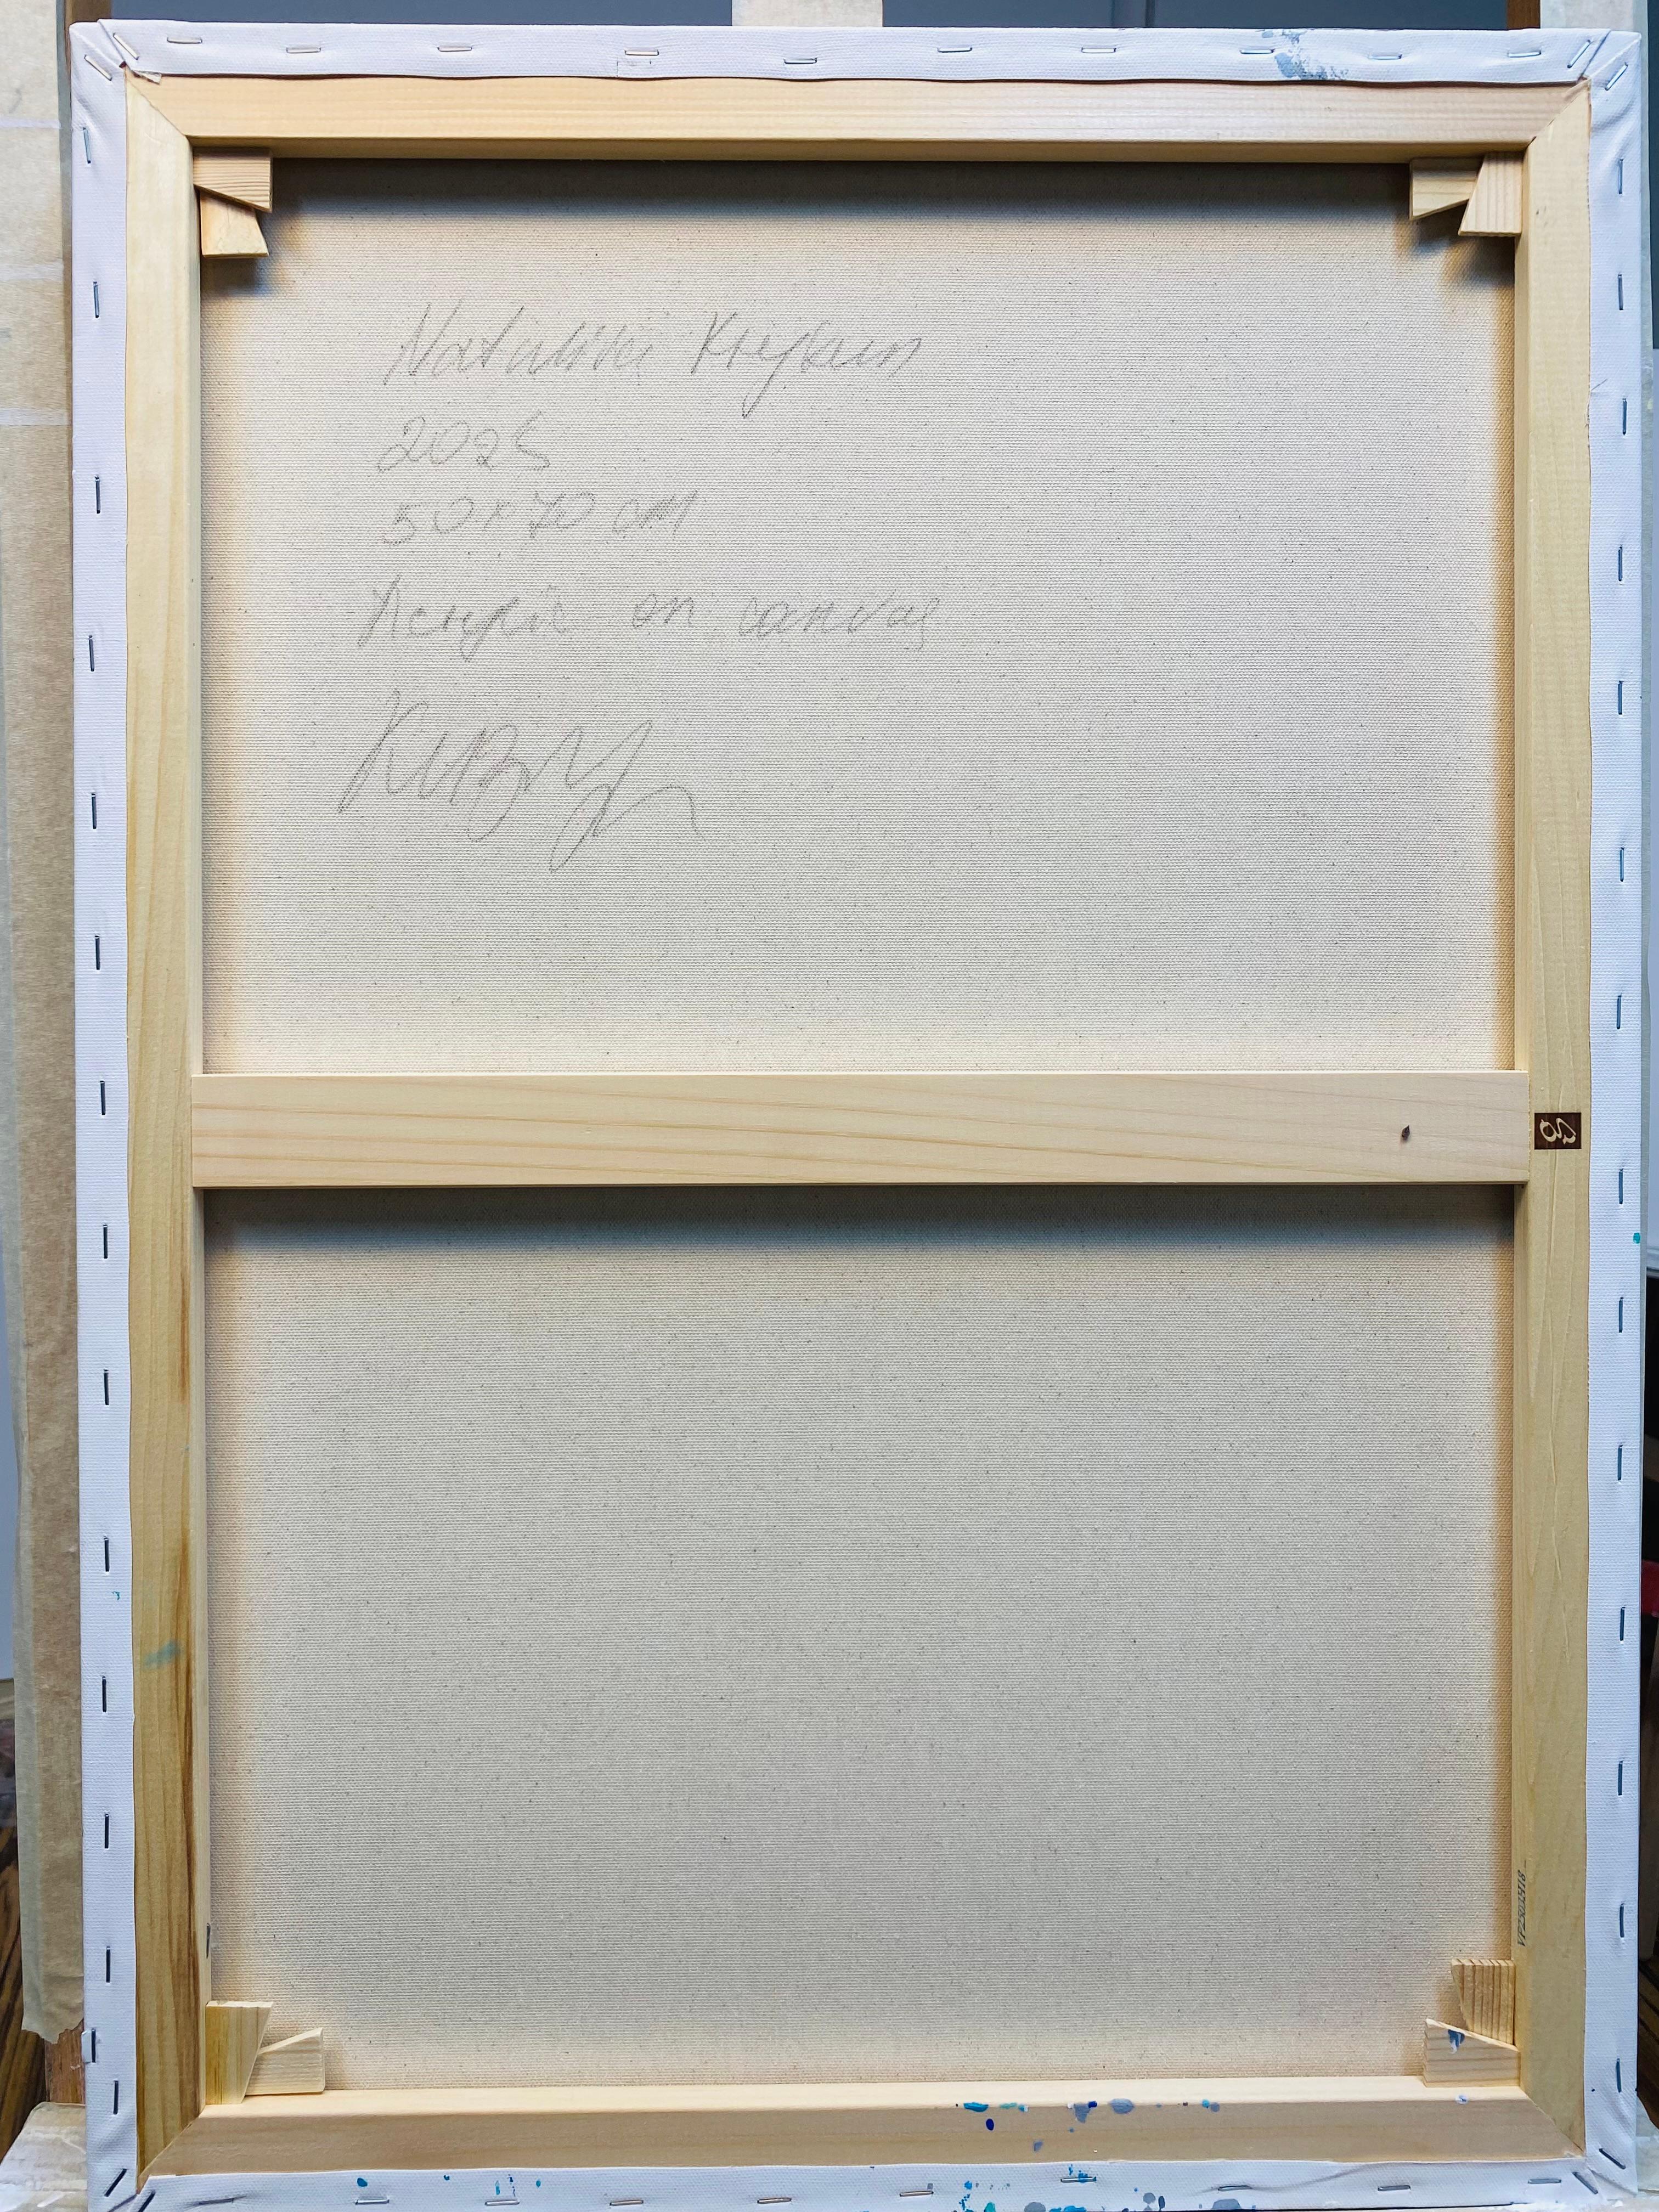 Nataliia Krykun
2025
50x70 cm
Acrylic on canvas